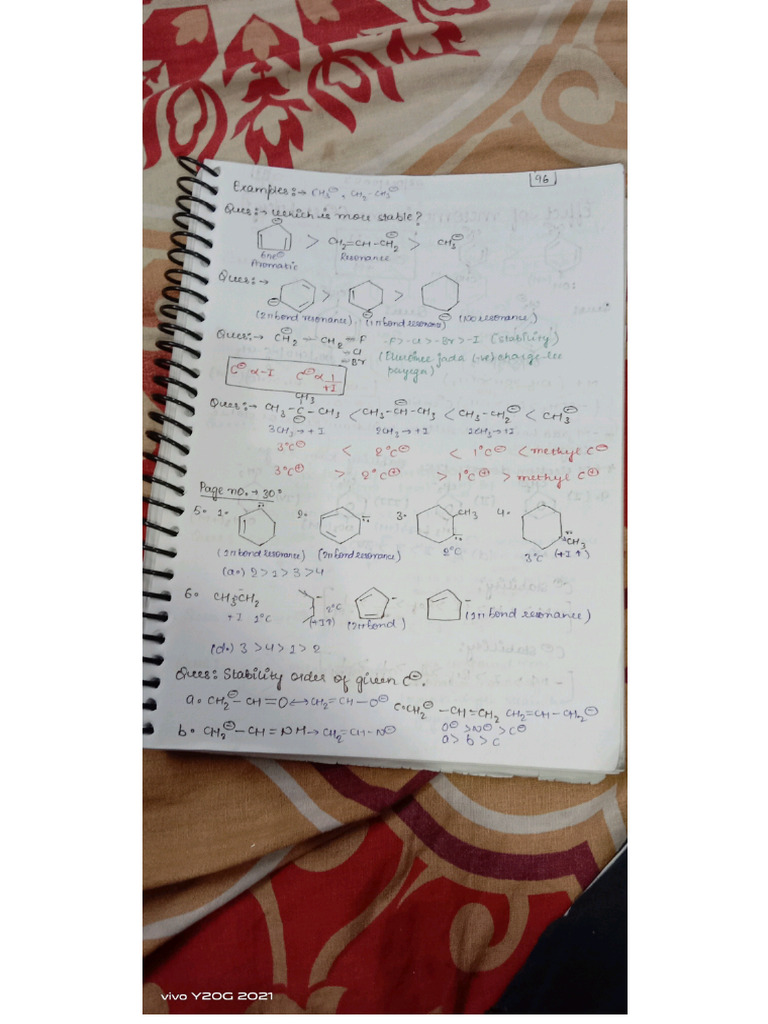 96
Examples:→ CH3⊖, CH2-CH3⊖
Ques:→ Which is more stable?
> CH2=CH-CH2⊖ > CH3⊖
6πe⊖ Resonance
Aromatic
Ques:→ > >
(2π bond resonance) (1π bond resonance) (No resonance)
Ques:→ CH2⊖ - CH2 - F -F>-Cl>-Br>-I (stability)
-Cl (Electroneg. jada (-ve) charge lee
-Br payega)
C⊖ ∝ -I C⊖ ∝ 1/+I
CH3
Ques:→ CH3-C-CH3 < CH3-CH-CH3 < CH3-CH2⊖ < CH3⊖
3CH3→+I 2CH3→+I 1CH3→+I
3°C⊖ < 2°C⊖ < 1°C⊖ < methyl C⊖
3°C⊕ > 2°C⊕ > 1°C⊕ > methyl C⊕
Page no.→30°
5. 1. 2. 3. CH3 4.
CH3
(1π bond resonance) (2π bond resonance) 2°C 3°C (+I↑)
(a.) 2>1>3>4
6. CH3CH2 - 2°C
+I 1°C (+I↑) (2π bond) (1π bond resonance)
(d.) 3>4>1>2
Ques: Stability order of given C⊖.
a. CH2⊖-CH=O↔CH2=CH-O⊖ c. CH2⊖-CH=CH2 CH2=CH-CH2⊖
b. CH2⊖-CH=NH→CH2=CH-N⊖ O⊖>N⊖>C⊖
a>b>c
vivo Y20G 2021